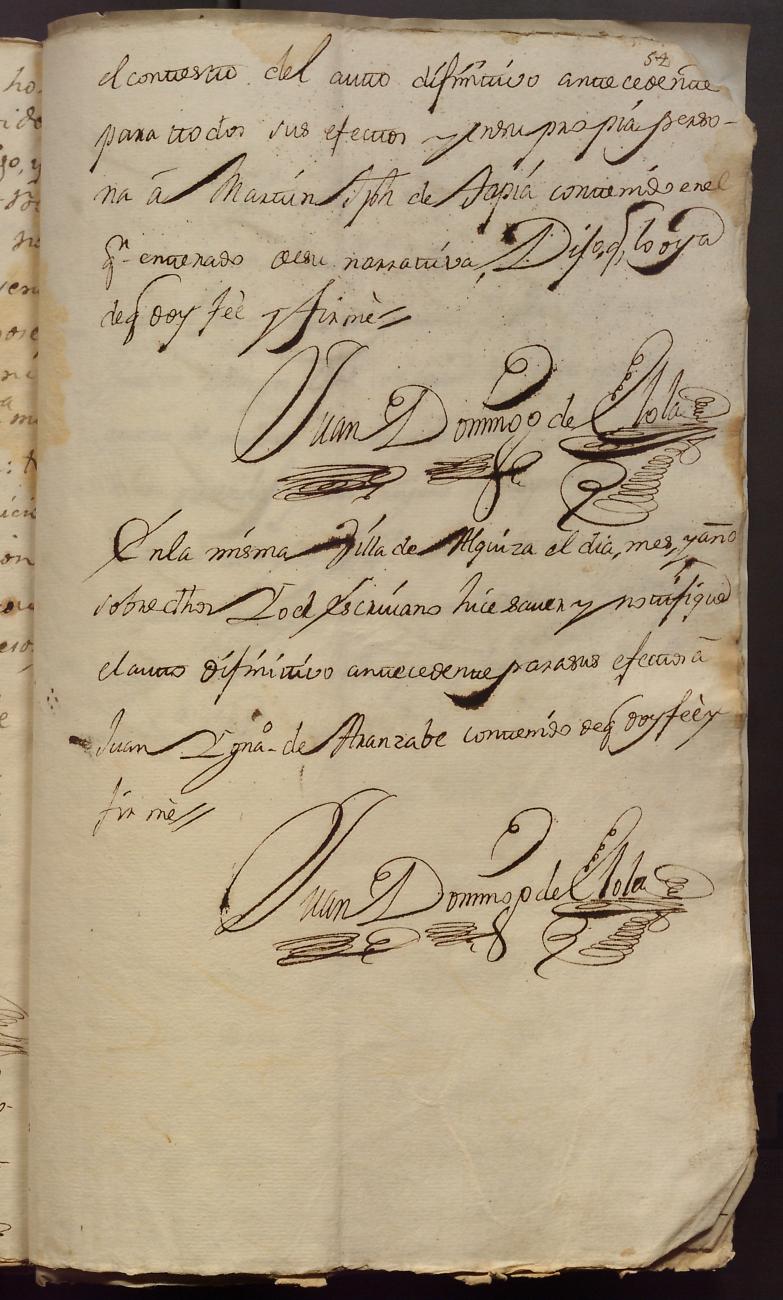 54
el contesto del auto difinitivo antecedente
para todos sus efectos y en su propia perso-
na â Martin Jph de Sapiá contenido en el
q.n enterado de su narrativa, Dijo, q, lo oya
de q doy feè y firmè=
Juan Domingo de Elola
En la misma Villa de Alquiza el dia, mes, y año
sobre dhos Yo el Escrivano hice saver y notifiqué
el auto difinitivo antecedente para sus efectos â
Juan Ygn.o de Aranzabe contenido de q doy feè y
firmè=
Juan Domingo de Elola